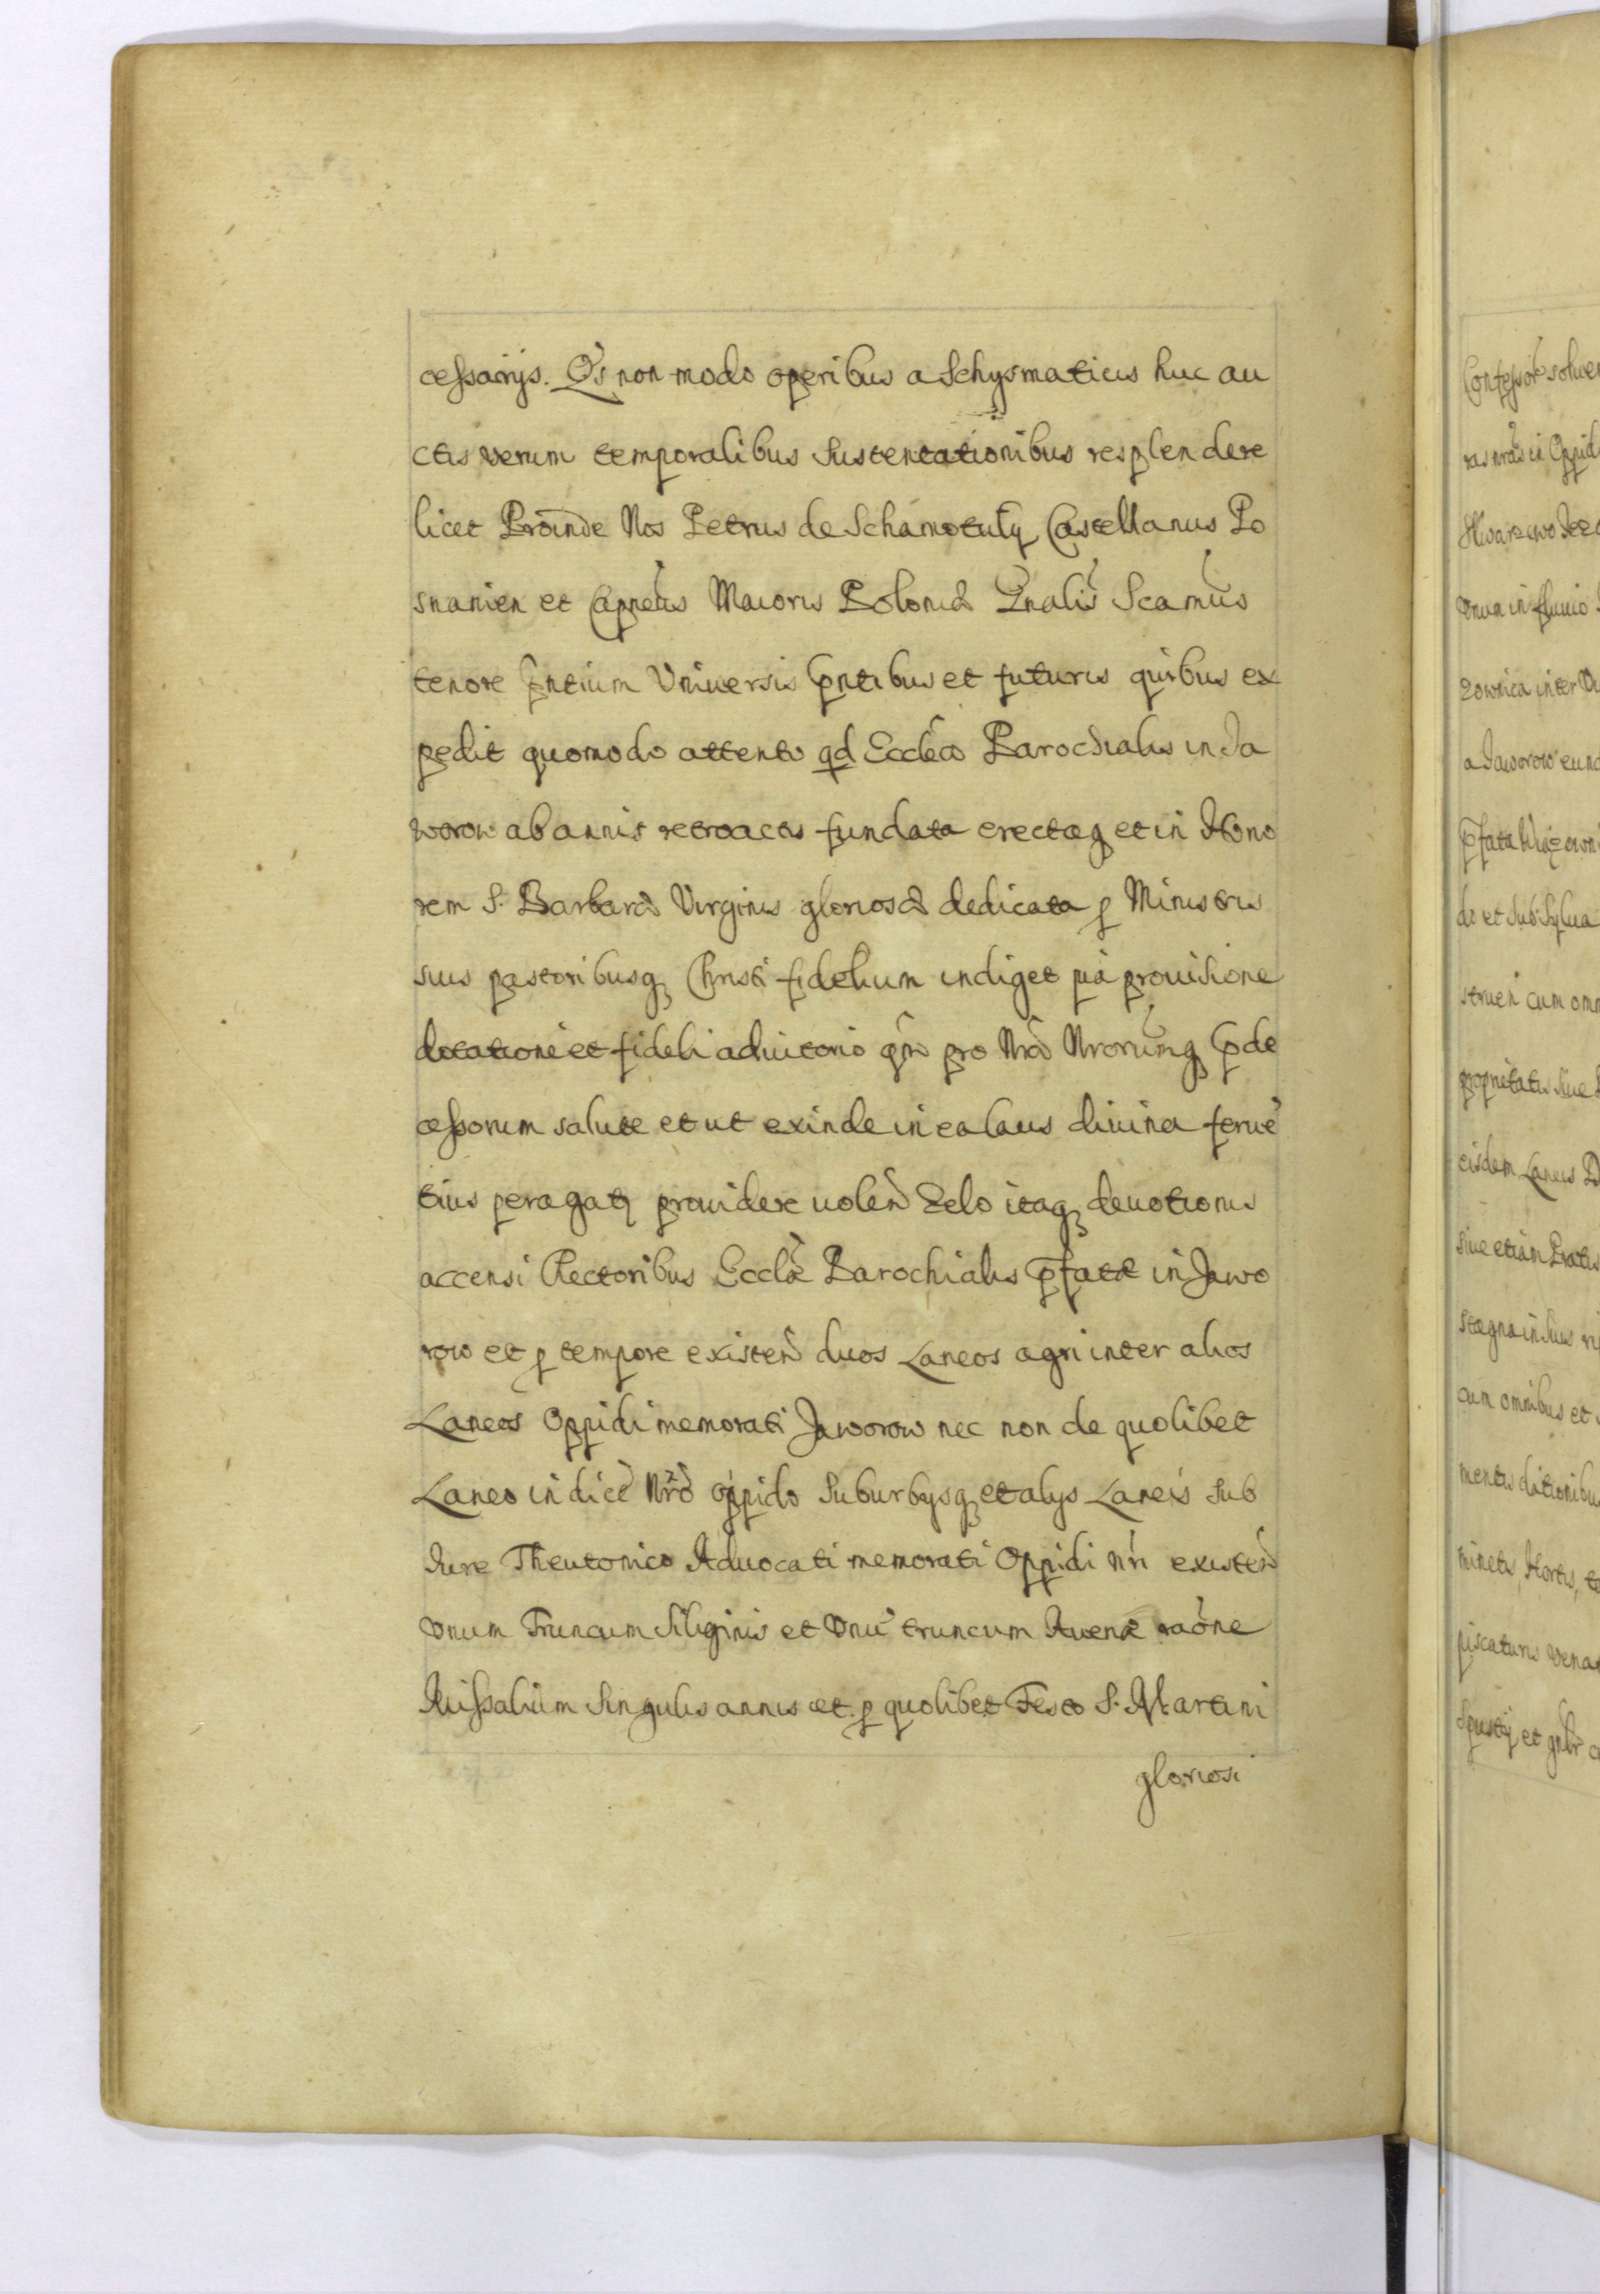 cessarijs. Q's non modo operibus a Schysmaticis huc au
ctis verum temporalibus sustentationibus resplendere
licet Proinde Nos Petrus de Schamotuly Castellanus Po
snanien et Capneus Maioris Poloniæ Gnalis Scamus
tenore pntium Universis pntibus et futuris quibus ex
pedit quomodo attento qd Ecclea Parochialis in Ja
worow ab annis retroactis fundata erectaq et in Hono
rem S. Barbaræ Virginis gloriosæ dedicata p Ministris
suis pastoribusq Christi fidelium indiget pia prouisione
dotatione et fideli adiutorio qm pro Nra Nrorumq prde
cessorum salute et ut exinde in ea laus diuina ferue
tius peragatq prouidere uolen Zelo itaq deuotionis
accensi Rectoribus Ecclæ Parochialis pfatæ in Jawo
row et p tempore existen duos Laneos agri inter alios
Laneos Oppidi memorati Jaworow nec non de quolibet
Laneo in dict Nro oppido Suburbysq et alys Laneis sub
Jure Theutonico Aduocati memorati Oppidi nri existen
Vnum Truncum Siliginis et Vnu truncum Auenæ raone
Missalium singulis annis et p quolibet Festo S. Martini
gloriosi
Confessor solue
ras nras in Oppid
Vnum in fluuio
zownica inter
a Jaworow eund
do et sub Sylua
struen cum omn
proprietatis siue
eisdem Laneis D
siue etiam Pratis
stagna in suis ri
cum omnibus et
mentis ditionibu
minetis, Hortis,
piscaturis Vena